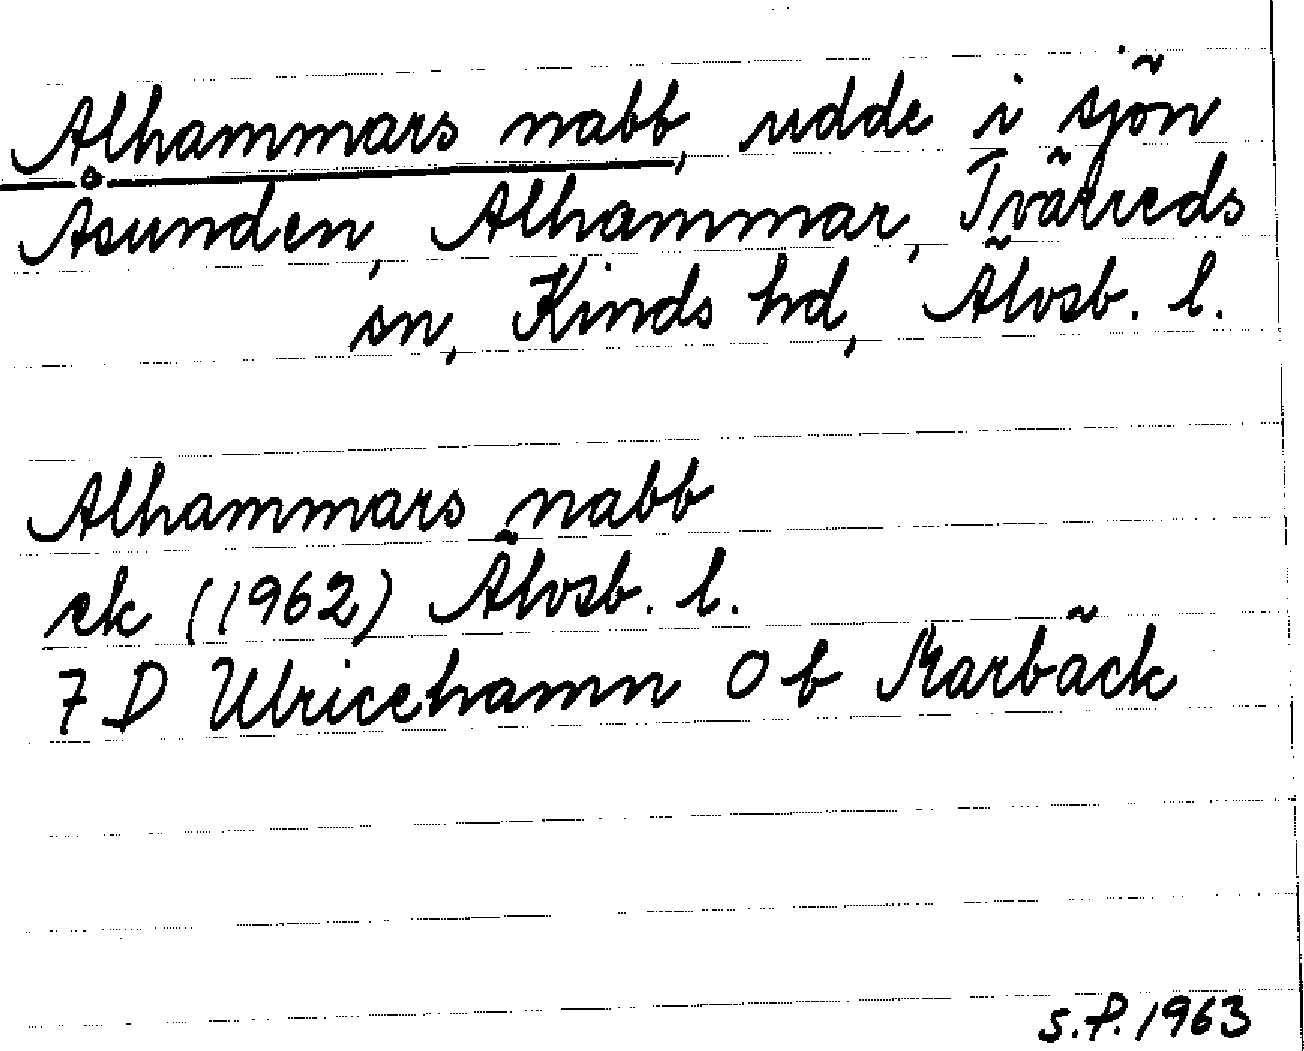 Alhammars nabb, udde i sjön
Åsunden, Alhammar, Tvärreds
sn, Kinds hd, Älvsb. l.
Alhammars nabb
ek (1962) Älvsb. l.
7 D Ulricehamn 0 b Marbäck
S.P. 1963